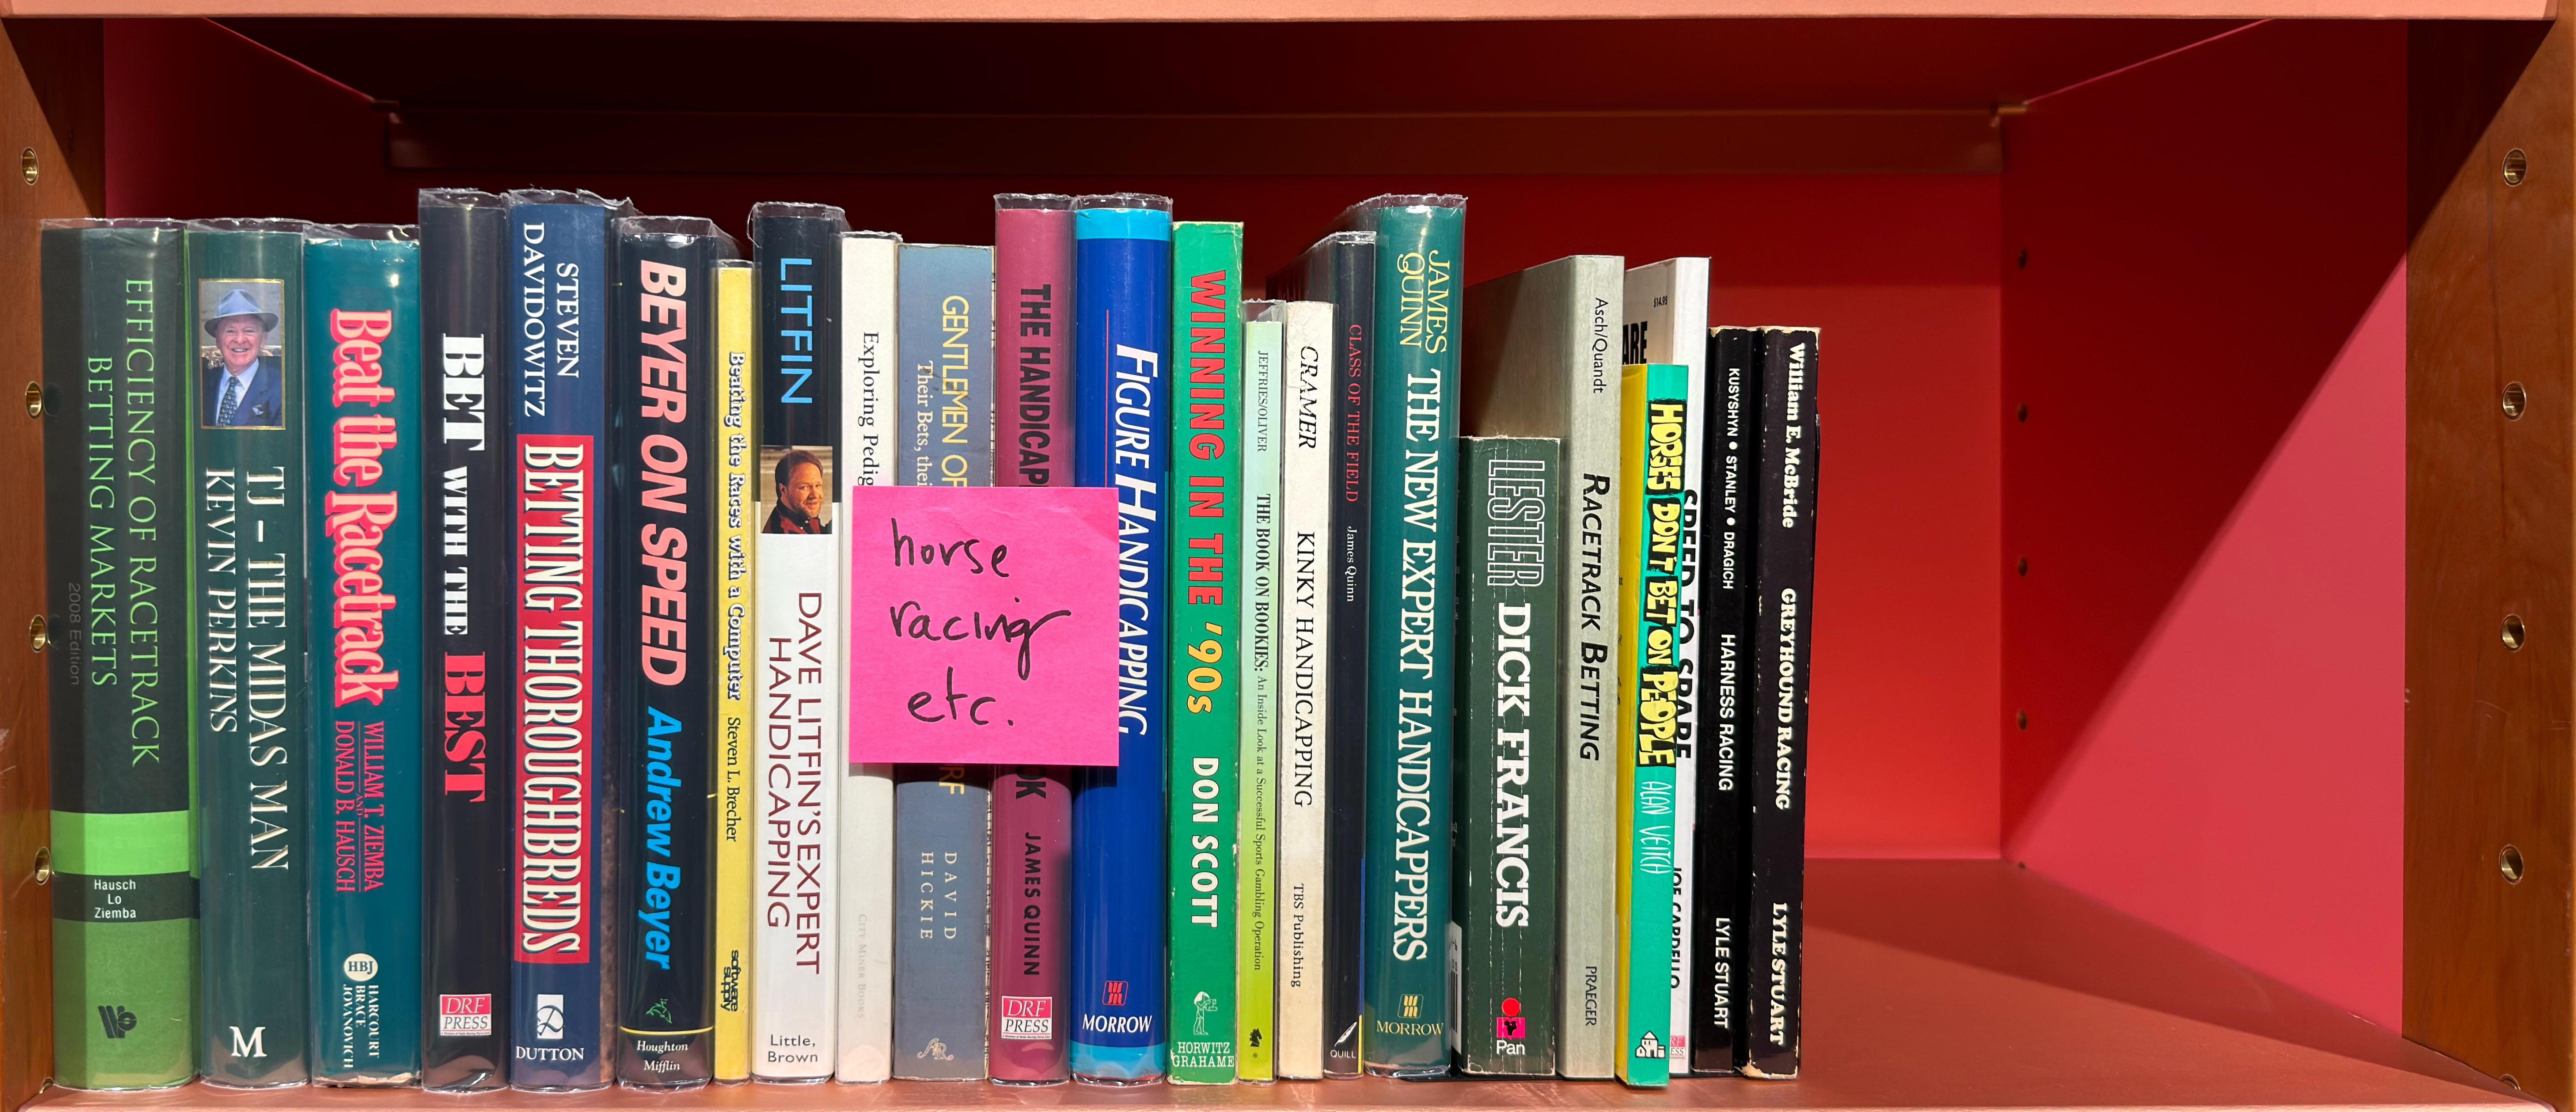 EFFICIENCY OF RACETRACK
BETTING MARKETS
2008 Edition
Hausch
Lo
Ziemba
TJ - THE MIDAS MAN
KEVIN PERKINS
M
Beat the Racetrack
WILLIAM T. ZIEMBA
AND
DONALD B. HAUSCH
HBJ
HARCOURT
BRACE
JOVANOVICH
BET WITH THE BEST
DRF
PRESS
STEVEN
DAVIDOWITZ
BETTING THOROUGHBREDS
DUTTON
BEYER ON SPEED
Andrew Beyer
Houghton
Mifflin
Beating the Races with a Computer
Steven L. Brecher
software
supply
LITFIN
DAVE LITFIN'S EXPERT
HANDICAPPING
Little,
Brown
Exploring Pedig
CITY MINER BOOKS
GENTLEMEN OF
RF
Their Bets, thei
DAVID
HICKIE
THE HANDICAP
OK
JAMES QUINN
DRF
PRESS
horse
racing
etc.
FIGURE HANDICAPPING
MORROW
WINNING IN THE '90s
DON SCOTT
HORWITZ
GRAHAME
JEFFRIES/OLIVER
THE BOOK ON BOOKIES: An Inside Look at a Successful Sports Gambling Operation
CRAMER
KINKY HANDICAPPING
TBS Publishing
CLASS OF THE FIELD
James Quinn
QUILL
JAMES
QUINN
THE NEW EXPERT HANDICAPPERS
MORROW
LESTER
DICK FRANCIS
Pan
Asch/Quandt
RACETRACK BETTING
PRAEGER
$14.95
ARE
HORSES DON'T BET ON PEOPLE
ALAN VEITCH
SPEED TO SPARE
JOE CARDELLO
KUSYSHYN • STANLEY • DRAGICH
HARNESS RACING
LYLE STUART
William E. McBride
GREYHOUND RACING
LYLE STUART